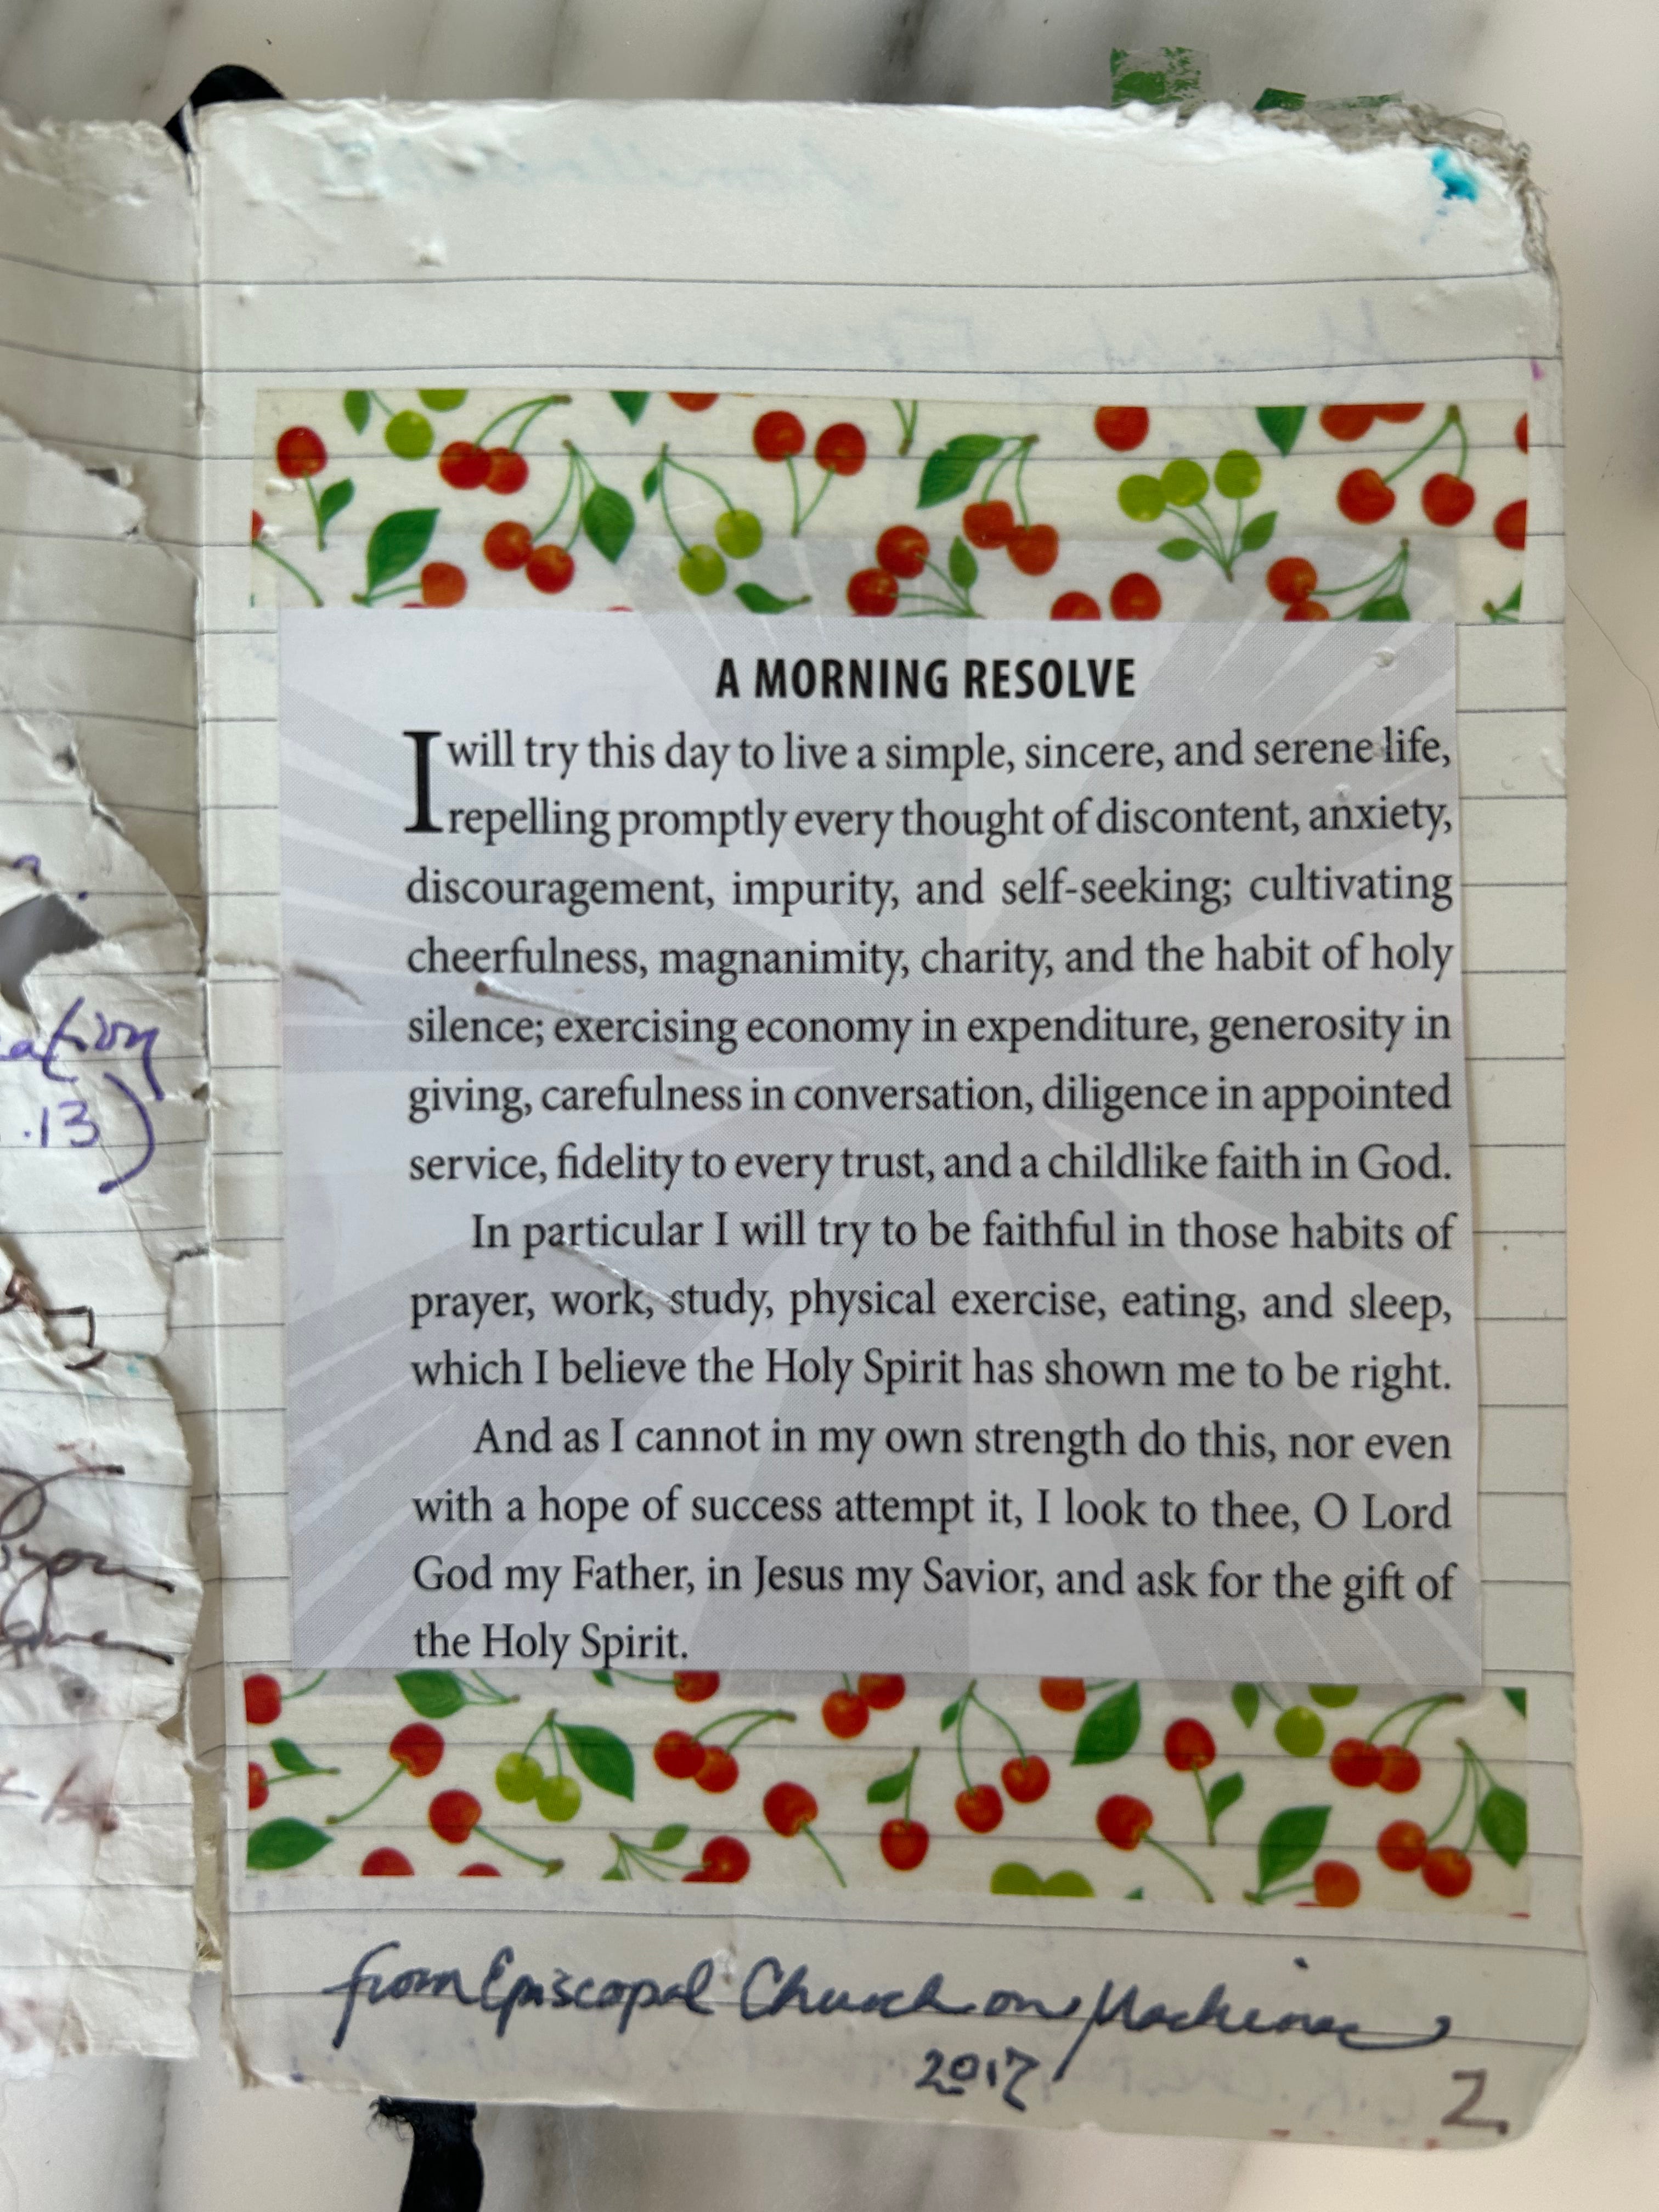 A MORNING RESOLVE
I will try this day to live a simple, sincere, and serene life,
repelling promptly every thought of discontent, anxiety,
discouragement, impurity, and self-seeking; cultivating
cheerfulness, magnanimity, charity, and the habit of holy
silence; exercising economy in expenditure, generosity in
giving, carefulness in conversation, diligence in appointed
service, fidelity to every trust, and a childlike faith in God.
In particular I will try to be faithful in those habits of
prayer, work, study, physical exercise, eating, and sleep,
which I believe the Holy Spirit has shown me to be right.
And as I cannot in my own strength do this, nor even
with a hope of success attempt it, I look to thee, O Lord
God my Father, in Jesus my Savior, and ask for the gift of
the Holy Spirit.
from Episcopal Church on Mackinac
2017
2
ation
.13)